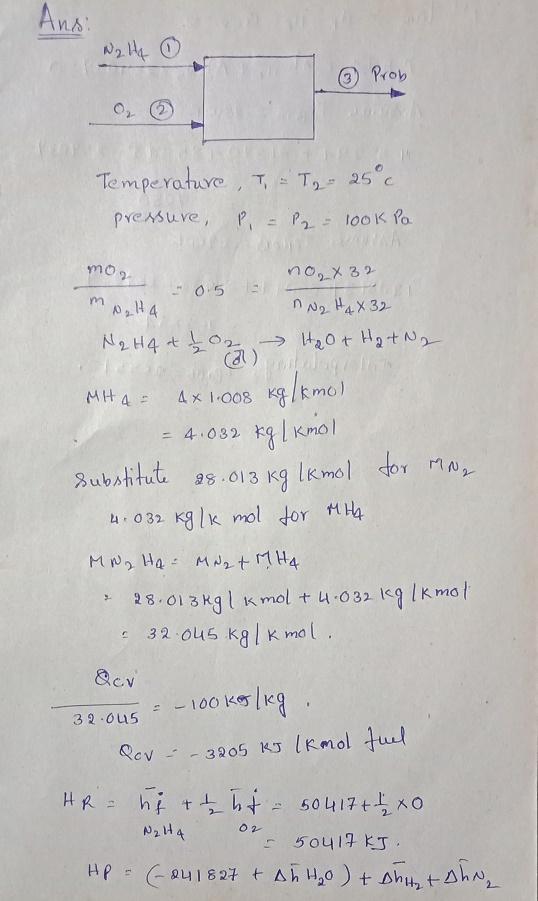 Ans:
N2H4 ①
③ Prob
O2 ②
Temperature, T1 = T2 = 25°c
pressure, P1 = P2 = 100K Pa
mO2 / mN2H4 = 0.5 = nO2 x 32 / nN2H4 x 32
N2H4 + 1/2 O2 → H2O + H2 + N2
MH4 = 4 x 1.008 kg/kmol
= 4.032 kg/kmol
Substitute 28.013 kg/kmol for MN2
4.032 kg/k mol for MH4
MN2H4 = MN2 + MH4
= 28.013 kg/kmol + 4.032 kg/kmol
= 32.045 kg/kmol.
Qcv / 32.045 = -100 KJ/kg.
Qcv = -3205 KJ/kmol fuel
HR = h̄f° N2H4 + 1/2 h̄f° O2 = 50417 + 1/2 x 0
= 50417 KJ.
HP = (-241827 + Δh̄ H2O) + Δh̄H2 + Δh̄N2